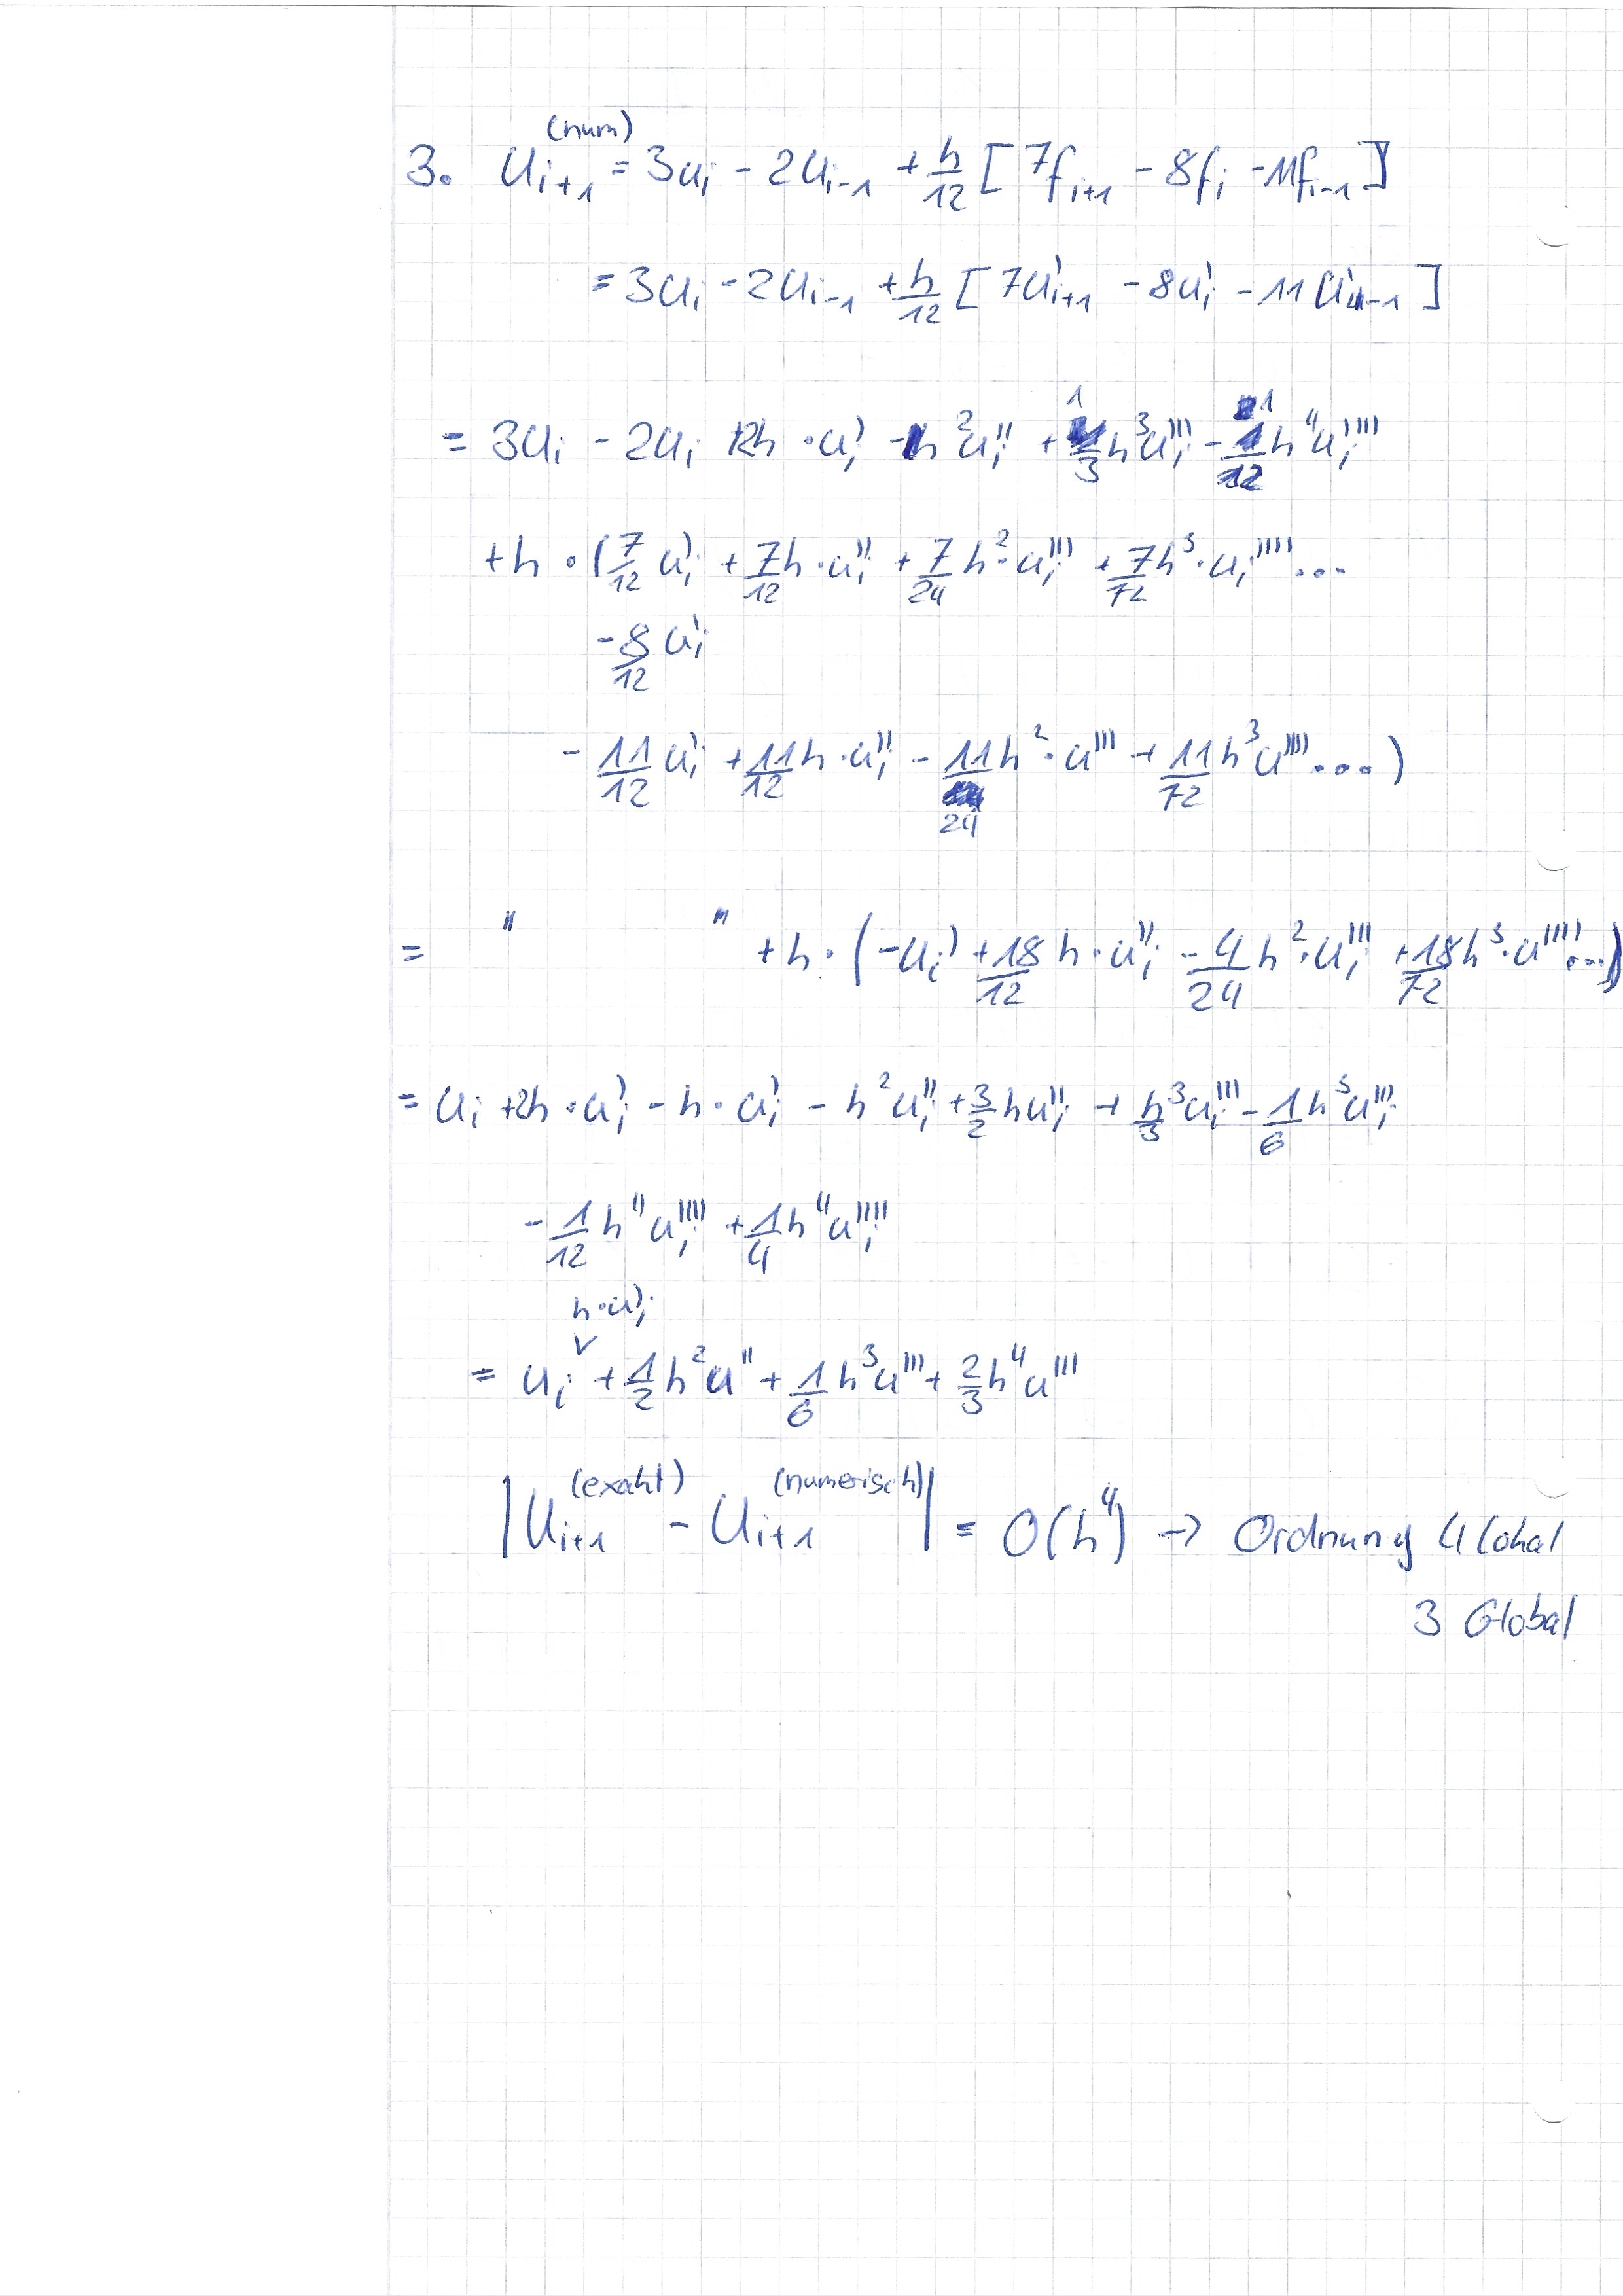 3. u_{i+1}^{(num)} = 3u_i - 2u_{i-1} + h/12 [ 7f_{i+1} - 8f_i - 11f_{i-1} ]
= 3u_i - 2u_{i-1} + h/12 [ 7u'_{i+1} - 8u'_i - 11u'_{i-1} ]
= 3u_i - 2u_i + 2h · u'_i - h²u''_i + 1/3 h³u'''_i - 1/12 h⁴u''''_i
+ h · ( 7/12 u'_i + 7/12 h · u''_i + 7/24 h² · u'''_i + 7/72 h³ · u_i'''' ...
- 8/12 u'_i
- 11/12 u'_i + 11/12 h · u''_i - 11/24 h² · u''' + 11/72 h³ u'''' ... )
= " " + h · ( -u_i' + 18/12 h · u''_i - 4/24 h² · u'''_i + 18/72 h³ · u'''' ... )
= u_i + 2h · u'_i - h · u'_i - h²u''_i + 3/2 h u''_i + h/3 ³u_i''' - 1/6 h³u'''_i
- 1/12 h⁴u''''_i + 1/4 h⁴u''''_i
h · u'_i
= u_i ∨ + 1/2 h²u'' + 1/6 h³u''' + 2/3 h⁴u'''
| u_{i+1}^{(exakt)} - u_{i+1}^{(numerisch)} | = O(h⁴) → Ordnung 4 lokal
3 Global